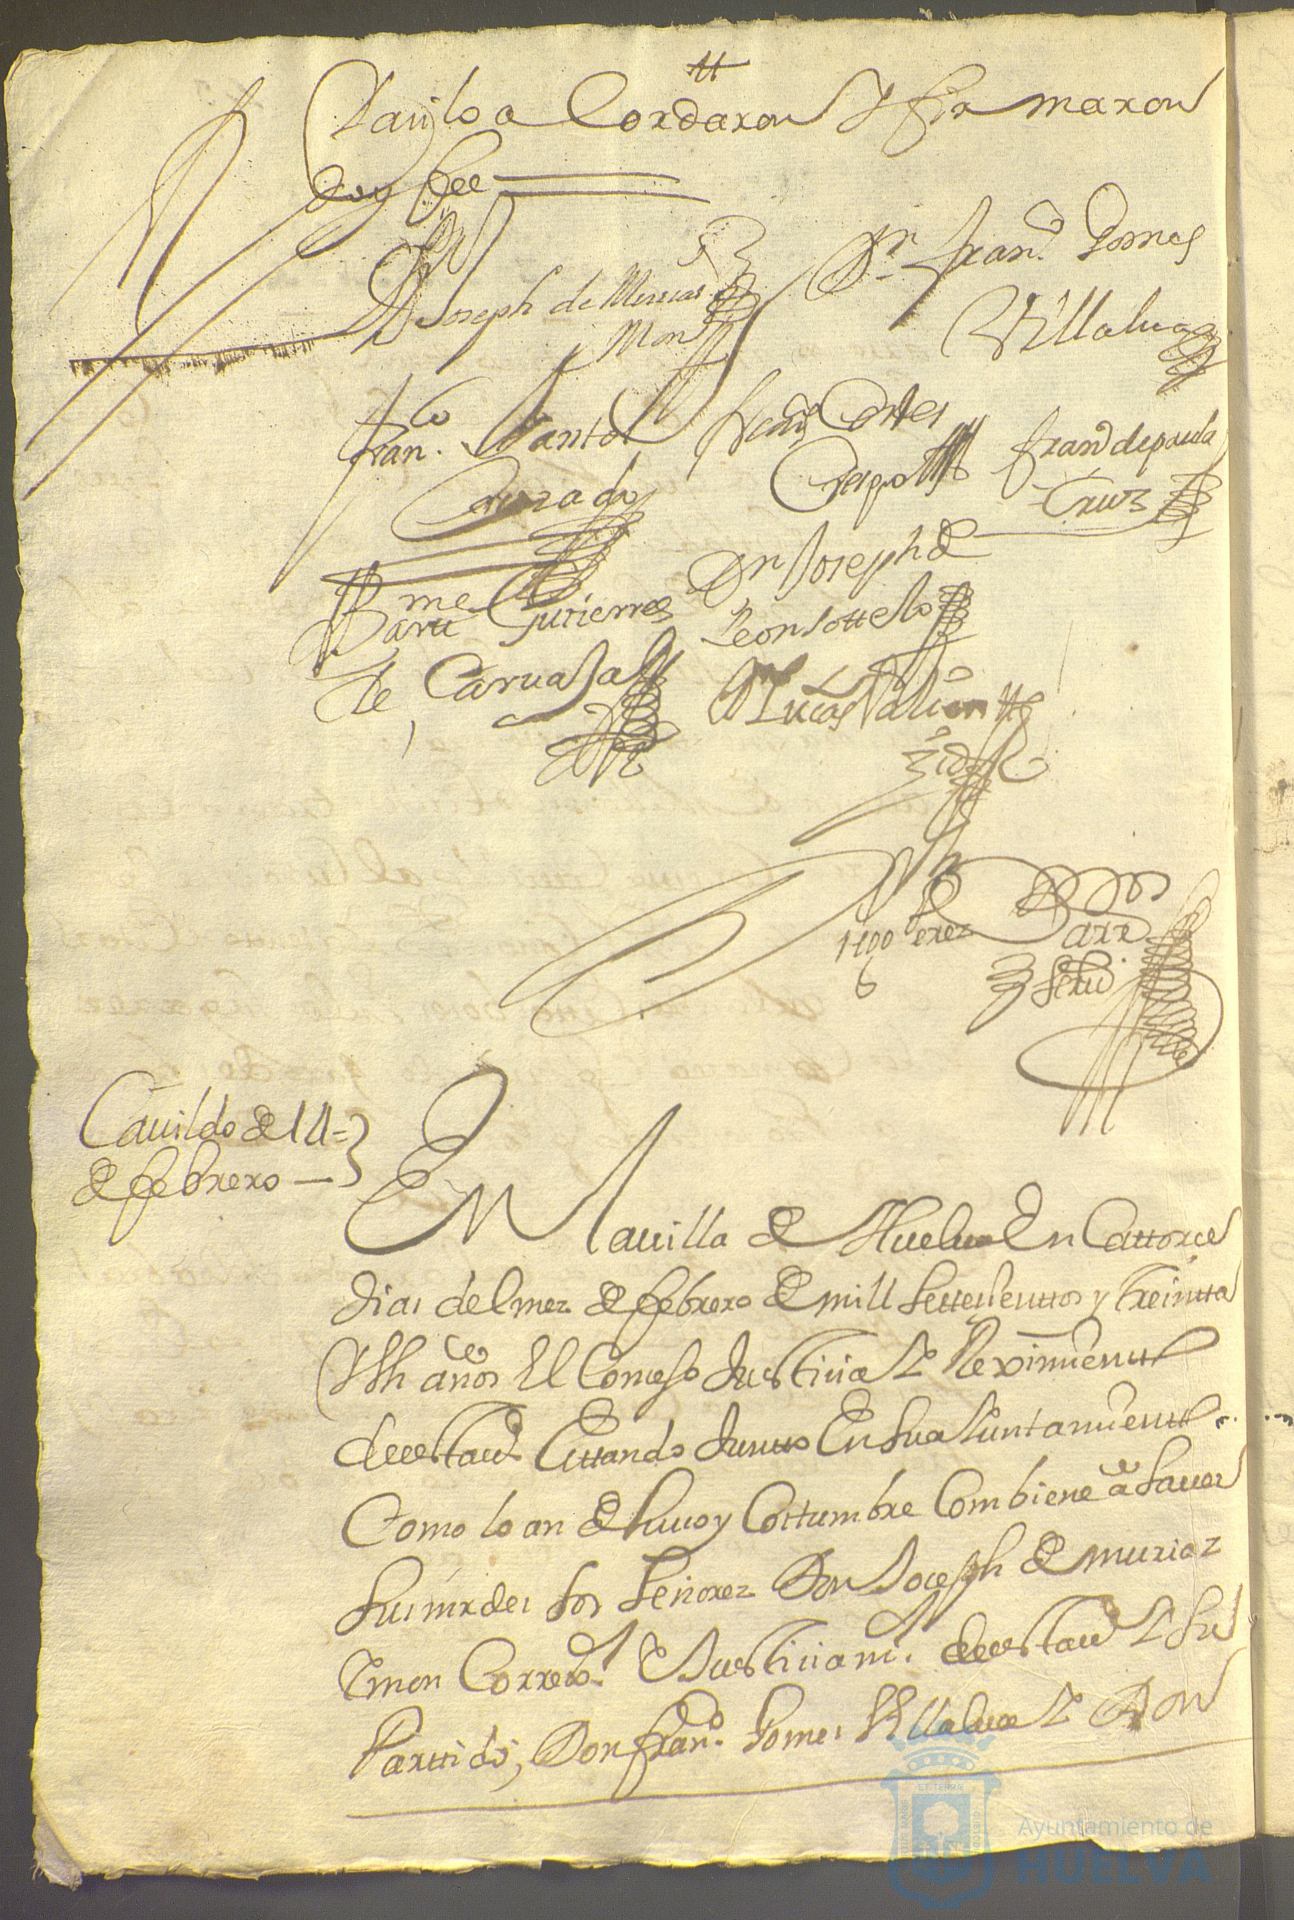 Y assi lo acordaron Y firmaron
doy fee
Dn Joseph de Murias
Mon
Dn Franco Gomes
Villalua
Franco Santos
Quizado
Franco Cortes
Crespo
Franco de paula
Cruz
Barme Gutierres
de Caruajal
Dn Joseph de
Leon sottelo
Dn Lucas Valiente
Diego Perez Barr
Scriuo
Cauildo de 14
de febrero
En la uilla de Huelua En Cattorce
dias del mez de febrero de mill settesienttos y treintta
años El Consejo Justicia Y Reximientto
desta va Esttando Juntto En su aiuntamientto
Como lo an de huso y Costumbre Combiene a sauer
sus mrdes los señorez Don Joseph de muriaz
Y mon Corregor Y Justicia mr desta va Y su
Parttido, Don Franco Gomes Villalua Y Don
Ayuntamiento de
HUELVA